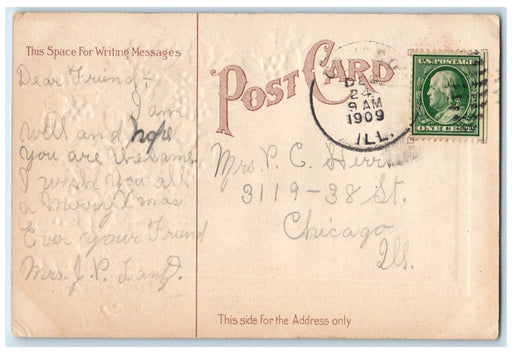 This Space For Writing Messages
POST CARD
DEC
24
9 AM
1909
ILL.
U.S. POSTAGE
ONE CENT
Dear Friend:-
I am
well and hope
you are the same
I wish you all
a Merry Xmas
Ever your Friend
Mrs. J. P.
Mrs. P. C. Herr
3119-38 St.
Chicago
Ills.
This side for the Address only